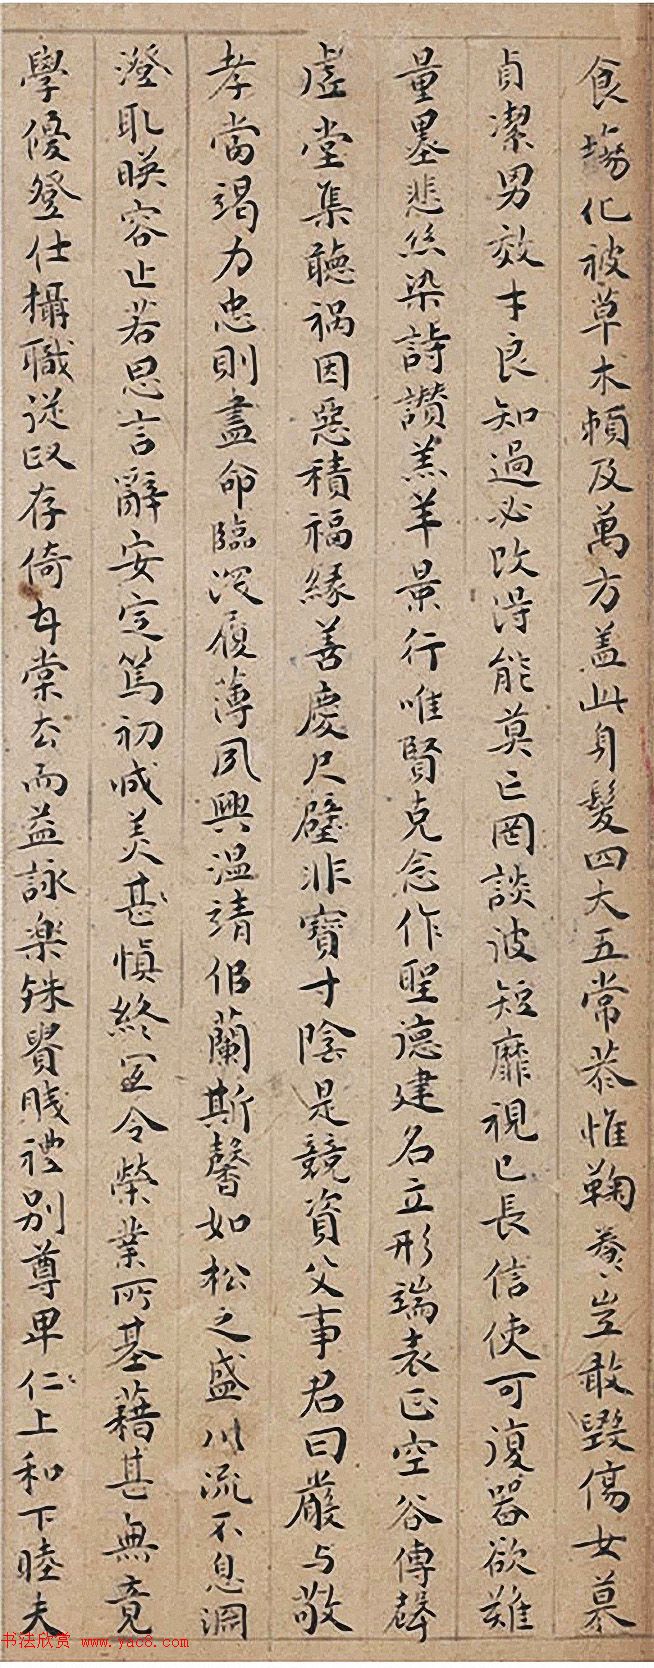 食場化被草木頼及萬方盖此身髮四大五常恭惟鞠養豈敢毀傷女慕
貞潔男效才良知過必改得能莫亡罔談彼短靡視已長信使可復器欲難
量墨悲絲染詩讚羔羊景行唯賢克念作聖德建名立形端表正空谷傳聲
虛堂集聽禍因惡積福緣善慶尺璧非寶寸陰是競資父事君曰嚴与敬
孝當竭力忠則盡命臨深履薄夙興温清似蘭斯馨如松之盛川流不息淵
澄取暎容止若思言辭安定篤初誠美甚慎終宜令榮業所基藉甚無竟
學優登仕攝職從政存倚甘棠去而益詠楽殊貴賤禮別尊卑仁上和下睦夫
书法欣赏 www.yac8.com